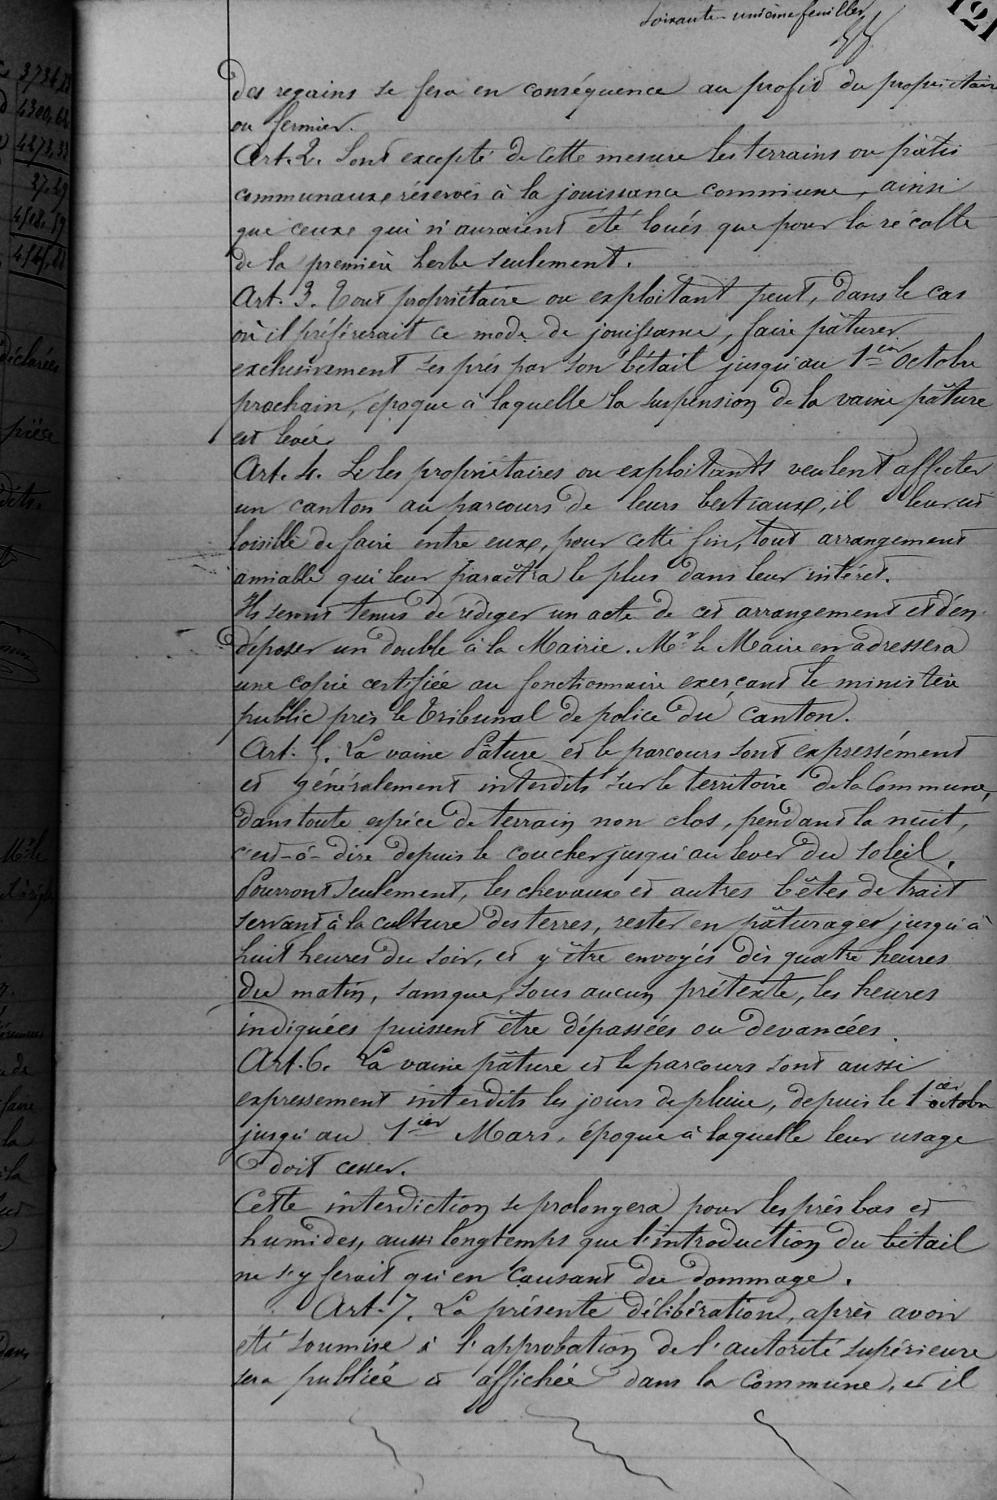 soixante-unième feuillet
121
des regains se fera en conséquence au profit du propriétaire
ou fermier.
Art. 2. Sont excepté de cette mesure les terrains ou pâtis
communaux réservés à la jouissance commune, ainsi
que ceux qui n'auraient été loués que pour la récolte
de la première herbe seulement.
Art. 3. Tout propriétaire ou exploitant peut, dans le cas
où il préférerait ce mode de jouissance, faire pâturer
exclusivement ses prés par son bétail jusqu'au 1er octobre
prochain, époque à laquelle la suspension de la vaine pâture
est levée.
Art. 4. Si les propriétaires ou exploitants veulent affecter
un canton au parcours de leurs bestiaux, il leur est
loisible de faire entre eux, pour cette fin, tout arrangement
amiable qui leur paraîtra le plus dans leur intérêt.
Ils seront tenus de rédiger un acte de cet arrangement et d'en
déposer un double à la Mairie. Mr le Maire en adressera
une copie certifiée au fonctionnaire exerçant le ministère
public près le Tribunal de police du canton.
Art. 5. La vaine Pâture et le parcours sont expressément
et généralement interdits sur le territoire de la Commune,
dans toute espèce de terrain non clos, pendant la nuit,
c'est-à-dire depuis le coucher jusqu'au lever du soleil.
Pourront seulement, les chevaux et autres bêtes de trait
servant à la culture des terres, rester en pâturages jusqu'à
huit heures du soir, et y être envoyés dès quatre heures
du matin, sans que, sous aucun prétexte, les heures
indiquées puissent être dépassées ou devancées.
Art. 6. La vaine pâture et le parcours sont aussi
expressement interdits les jours de pluie, depuis le 1er octobre
jusqu'au 1er Mars, époque à laquelle leur usage
doit cesser.
Cette interdiction se prolongera pour les prés bas et
humides, aussi longtemps que l'introduction du bétail
ne s'y ferait qu'en causant du dommage.
Art. 7. La présente délibération, après avoir
été soumise à l'approbation de l'autorité supérieure
sera publiée et affichée dans la Commune, et il